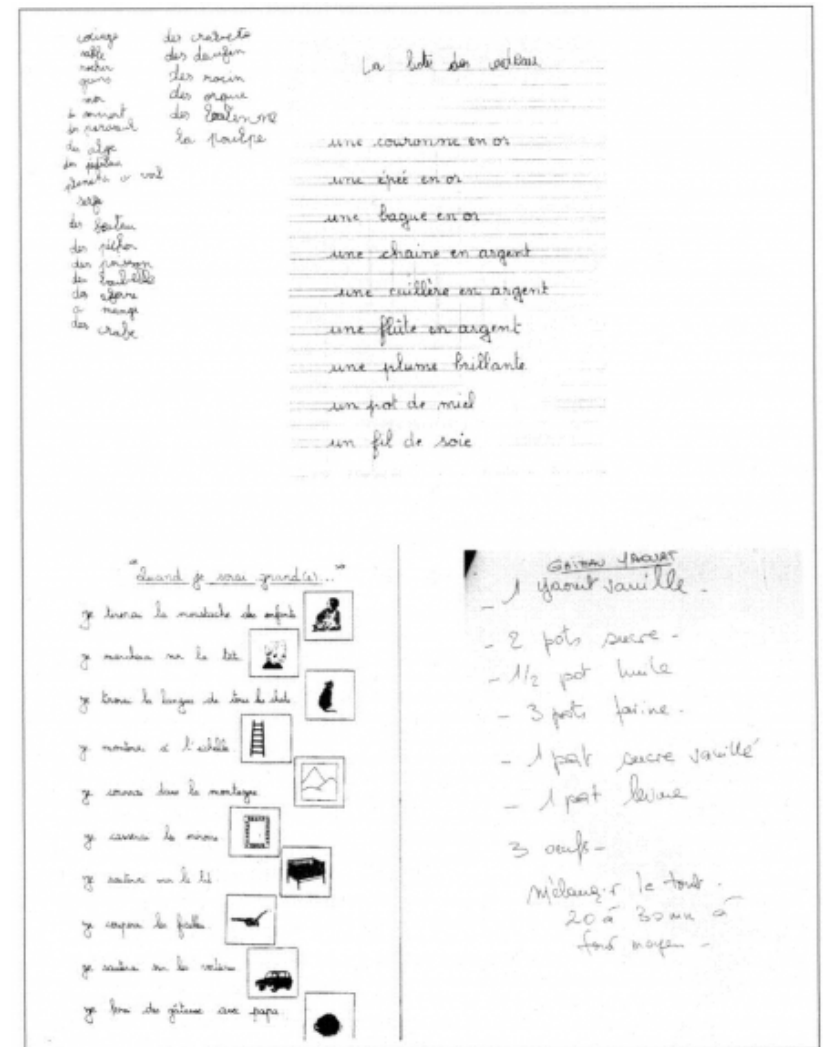 coliage
sable
rocher
mor
des alge
plonete a voil
des bouteu
des pichor
des poisson
des boubelle
a mange
des crabe
des crevete
des daufin
des rocin
des orque
des balenne
la poulpe
La liste des cadeau
une couronne en or
une épée en or
une bague en or
une chaine en argent
une cuillère en argent
une flûte en argent
une plume brillante
un pot de miel
un fil de soie
"Quand je serai grand(e)..."
je tirerai la moustache des enfants
je marcherai sur la tête
je tirerai la langue de tous les chats
je monterai à l'échelle
je courrai dans la montagne
je casserai le miroir
je sauterai sur le lit
je couperai la feuille
je sauterai sur la voiture
je ferai des gâteaux avec papa
GATEAU YAOURT
- 1 yaourt vanille -
- 2 pots sucre -
- 1/2 pot huile
- 3 pots farine -
- 1 pqt sucre vanillé
- 1 pqt levure
3 oeufs -
Mélanger le tout.
20 à 30 mn à
four moyen -